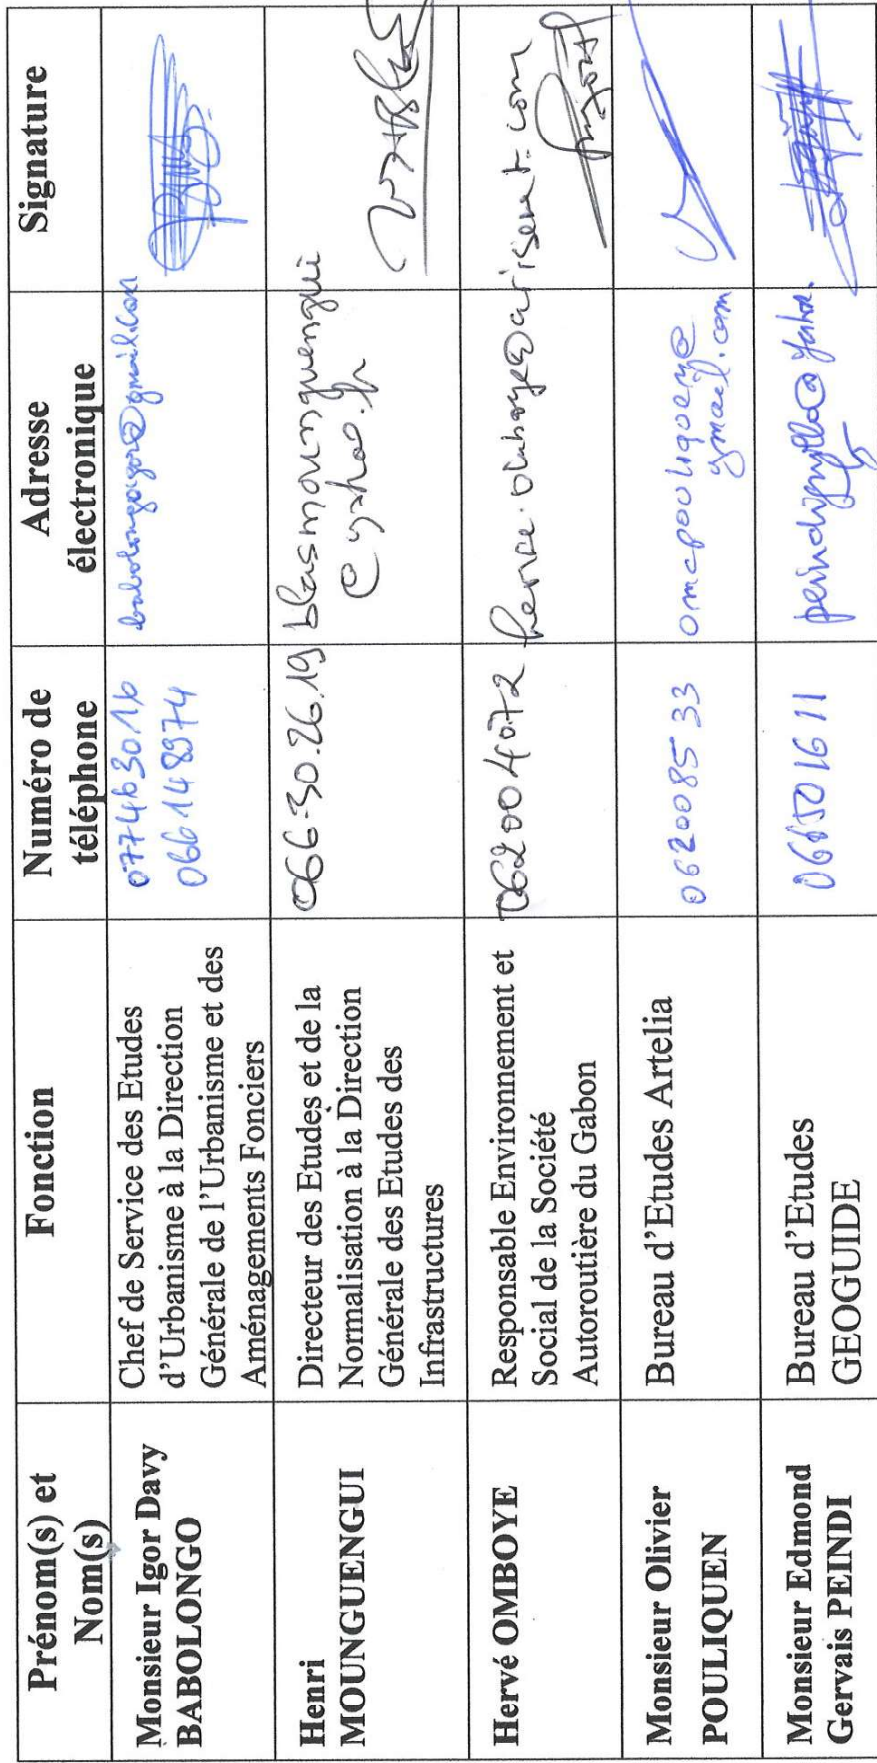 Prénom(s) et
Nom(s)
Fonction
Numéro de
téléphone
Adresse
électronique
Signature
Monsieur Igor Davy
BABOLONGO
Chef de Service des Etudes
d'Urbanisme à la Direction
Générale de l'Urbanisme et des
Aménagements Fonciers
077463016
066148974
babolongoigor@gmail.com
Henri
MOUNGUENGUI
Directeur des Etudes et de la
Normalisation à la Direction
Générale des Etudes des
Infrastructures
066.30.26.19
blasmounguengui
@yahoo.fr
Hervé OMBOYE
Responsable Environnement et
Social de la Société
Autoroutière du Gabon
062004072
Monsieur Olivier
POULIQUEN
Bureau d'Etudes Artelia
062008533
omcpouliquen@
gmail.com
Monsieur Edmond
Gervais PEINDI
Bureau d'Etudes
GEOGUIDE
066501611